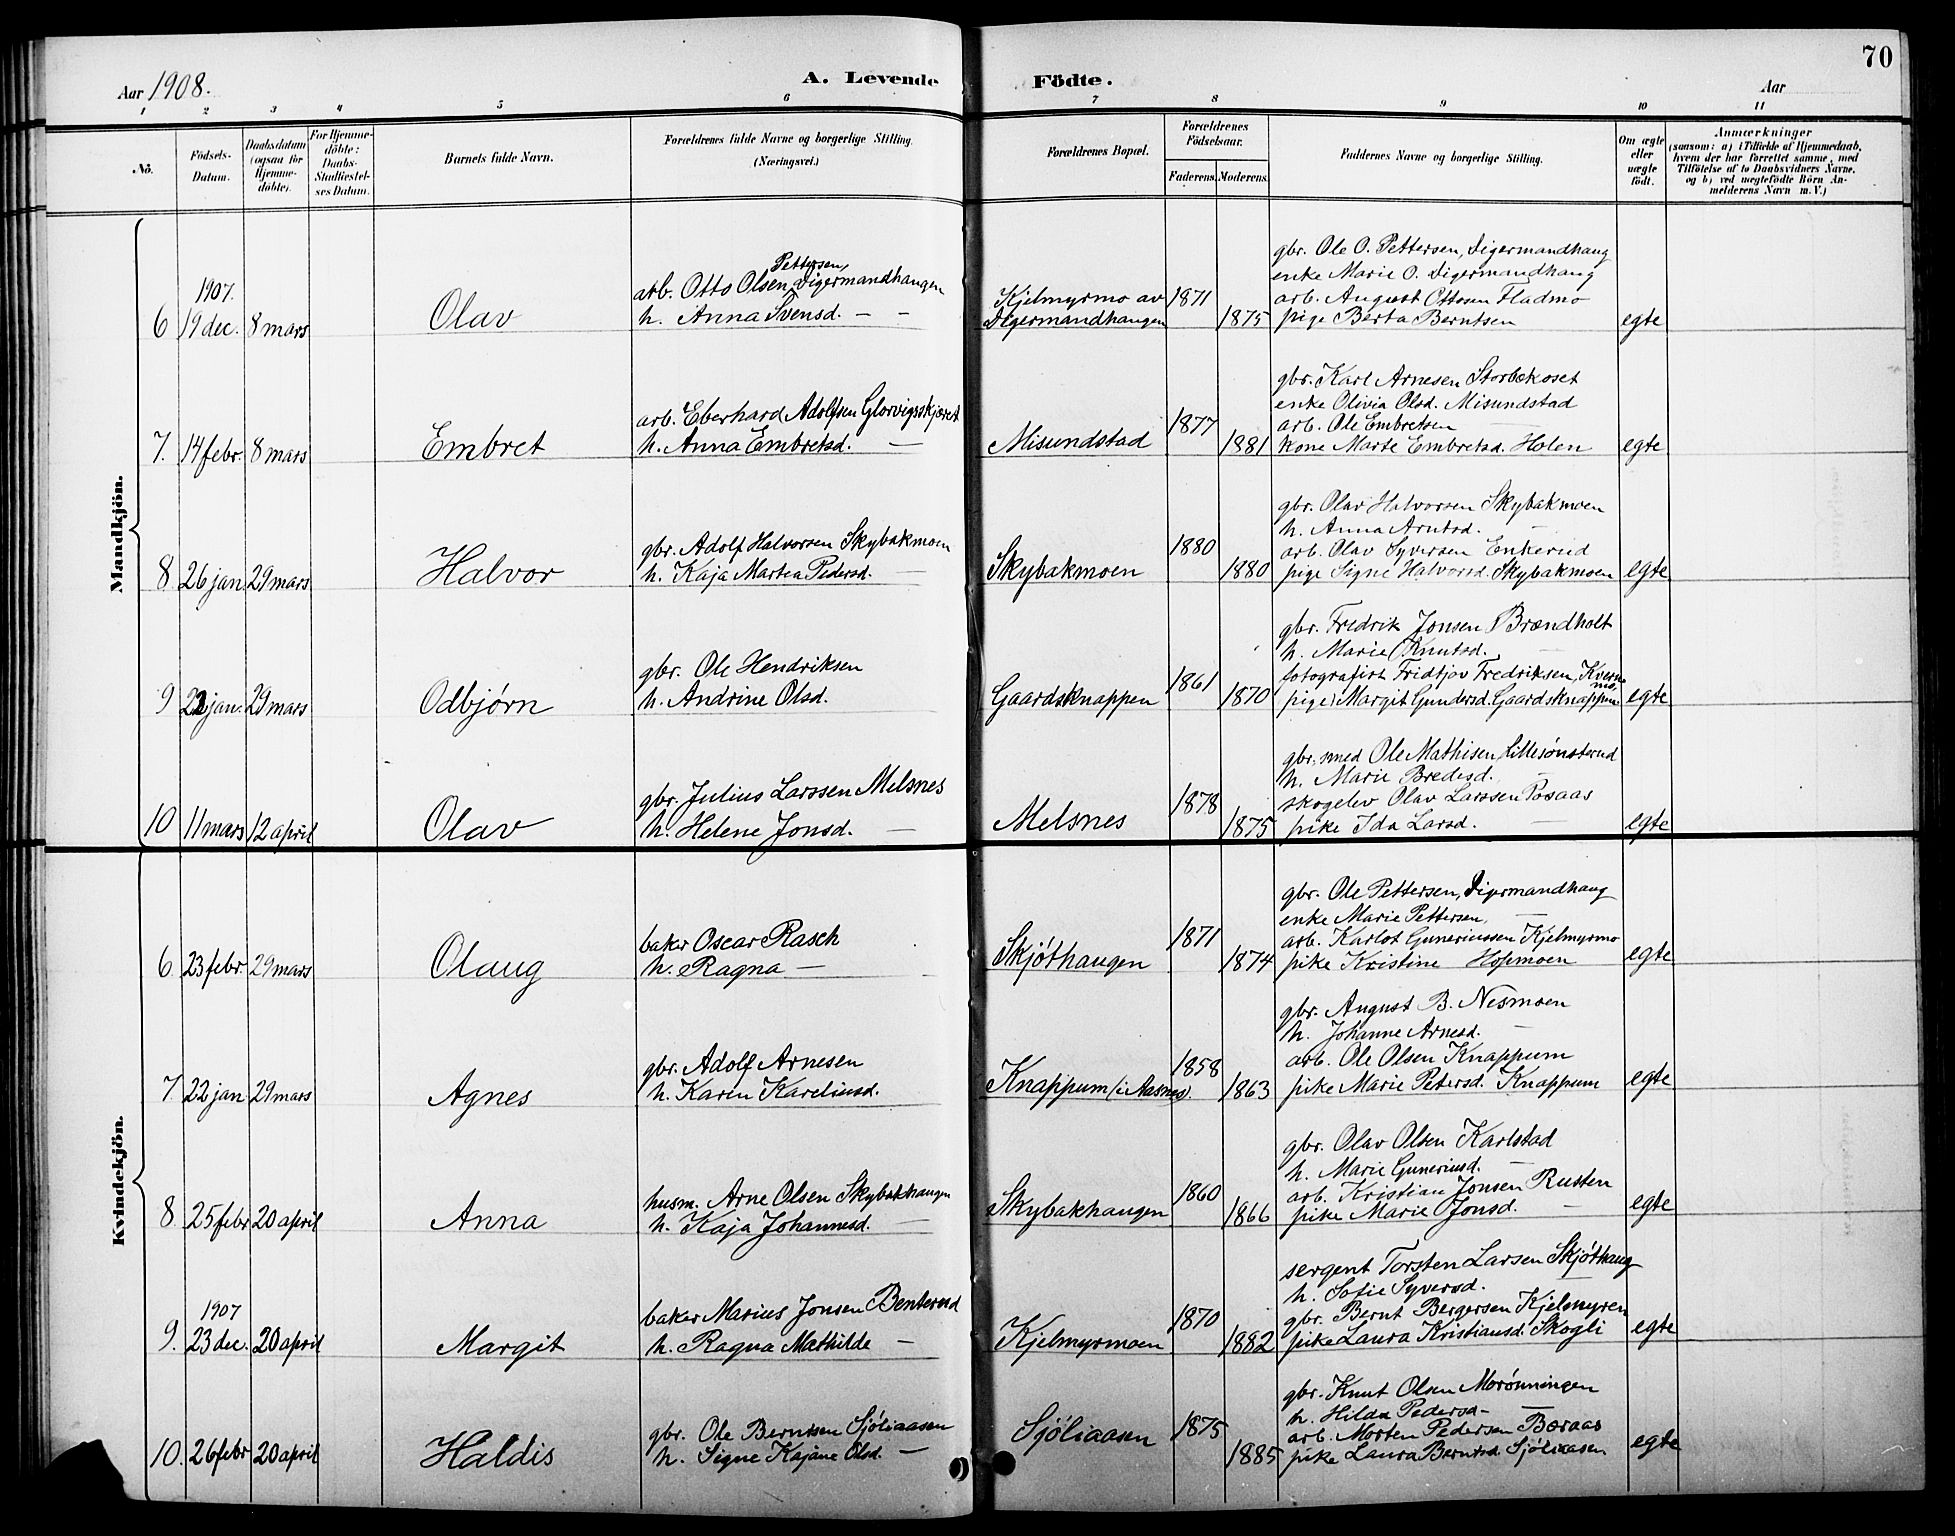 70
Aar 1908. A. Levende Födte. Aar
1 2 3 4 5 6 7 8 9 10 11
No. Födsels-Datum. Daabsdatum (ogsaa for Hjemme-döbte). For Hjemme-döbte: Daabs-Stadfæstel-ses Datum. Barnets fulde Navn. Forældrenes fulde Navne og borgerlige Stilling. (Næringsvei.) Forældrenes Bopæl. Forældrenes Födselsaar. Faderens. Moderens. Faddernes Navne og borgerlige Stilling. Om ægte eller uægte födt. Anmærkninger (saasom: a) i Tilfælde af Hjemmedaab, hvem der har forrettet samme, med Tilföielse af to Daabsvidners Navne, og b) ved uægtefödte Börn An-melderens Navn m. V.)
Mandkjön.
gbr. Ole O. Pettersen, Digermandhaug
Pettersen, enke Marie O. Digermandhaug
1907. arb. Otto Olsen Digermandhangen Kjelmyrmo av 1871 arb. August Ottosen Fladmo
6 19 dec. 8 mars Olav h. Anna Svensd. — — Digermandhaugen 1875 pige Berta Berntsen egte
gbr. Karl Arnesen Storbekoset
enke Olivia Olsd. Misundstad
arb. Eberhard Adolfsen Glorvigsskjæret 1877 arb. Ole Embretsen —
7. 14 febr. 8 mars Embret h. Anna Embretsd. — Misundstad 1881 kone Marte Embretsd. Holen egte
gbr. Olav Halvorsen Skybakmoen
h. Anna Arntsd. —
gbr. Adolf Halvorsen Skybakmoen 1880 arb. Olav Syversen Enkerud
8 26 jan. 29 mars Halvor h. Kaja Martea Pedersd. — Skybakmoen 1880 pige Signe Halvorsd. Skybakmoen egte
gbr. Fredrik Jonsen Brændholt
h. Marie Knutsd. —
gbr. Ole Hendriksen 1861 fotografist Fridtjov Fredriksen, Kvernmo,
9 22 jan. 29 mars Odbjørn h. Andrine Olsd. Gaardsknappen 1870 pige Margit Gundersd. Gaardsknappen egte
gbr., smed Ole Mathisen Lillesønsterud
h. Marie Bredesd. —
gbr. Julius Larssen Melsnes 1878 skogelev Olav Larssen Posaas
10 11 mars 12 april Olav h. Helene Jonsd. — Melsnes 1875 pike Ida Larsd. — egte
Kvindekjön.
gbr. Ole Pettersen, Digermandhaug
enke Marie Pettersen, —
baker Oscar Rasch 1871 arb. Karlot Guneriussen Kjelmyrmo
6. 23 febr. 29 mars Olaug h. Ragna — Skjøthaugen 1874 pike Kristine Hofmoen egte
gbr. August B. Nesmoen
h. Johanne Arnesd. —
gbr. Adolf Arnesen 1858 arb. Ole Olsen Knappum
7 22 jan 29 mars Agnes h. Karen Kareliusd. Knappum (i Aasnes). 1863 pike Marie Petersd. Knappum egte
gbr. Olav Olsen Karlstad
h. Marie Guneriusd. —
husm. Arne Olsen Skybakhaugen 1860 arb. Kristian Jonsen Rusten
8 25 febr 20 april Anna h. Kaja Johannesd. — Skybakhaugen 1866 pike Marie Jonsd. — egte
sergent Torsten Larsen Skjøthaug
h. Sofie Syversd. —
1907 baker Marius Jonsen Benterud 1870 gbr. Bernt Bergersen Kjelmyren
9. 23 dec. 20 april Margit h. Ragna Mathilde — Kjelmyrmoen 1882 pike Laura Kristiansd. Skogli egte
gbr. Knut Olsen Morønningen
h. Hilda Pedersd — —
gbr. Ole Berntsen Sjöliaasen 1875 arb. Morten Pedersen Bæraas
10. 26 febr 20 april Haldis h. Signe Kajane Olsd. — Sjöliaasen 1885 pike Laura Berntsd. Sjöliaasen egte